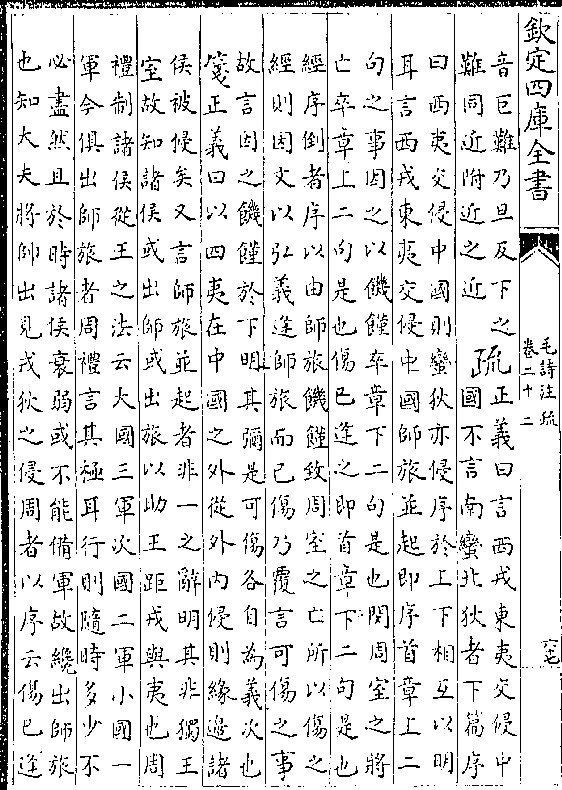 欽定四庫全書
毛詩注疏
卷二十二
音巨難乃旦反下之
難同近附近之近
疏
正義曰言西戎東夷交侵中
國不言南蠻北狄者下篇序
曰西夷交侵中國則蠻狄亦侵序於上下相互以明
耳言西戎東夷交侵中國師旅並起即序首章上二
句之事因之以饑饉卒章下二句是也閔周室之將
亡卒章上二句是也傷已逢之即首章下二句是也
經序倒者序以由師旅饑饉致周室之亡所以傷之
經則因文以弘義逢師旅而已傷乃覆言可傷之事
故言因之饑饉於下明其彌是可傷各自為義次也
箋正義曰以四夷在中國之外從外内侵則緣邊諸
侯被侵矣又言師旅並起者非一之辭明其非獨王
室故知諸侯或出師或出旅以助王距戎與夷也周
禮制諸侯從王之法云大國三軍次國二軍小國一
軍今俱出師旅者周禮言其極耳行則隨時多少不
必盡然且於時諸侯衰弱或不能備軍故纔出師旅
也知大夫將帥出見戎狄之侵周者以序云傷已逢